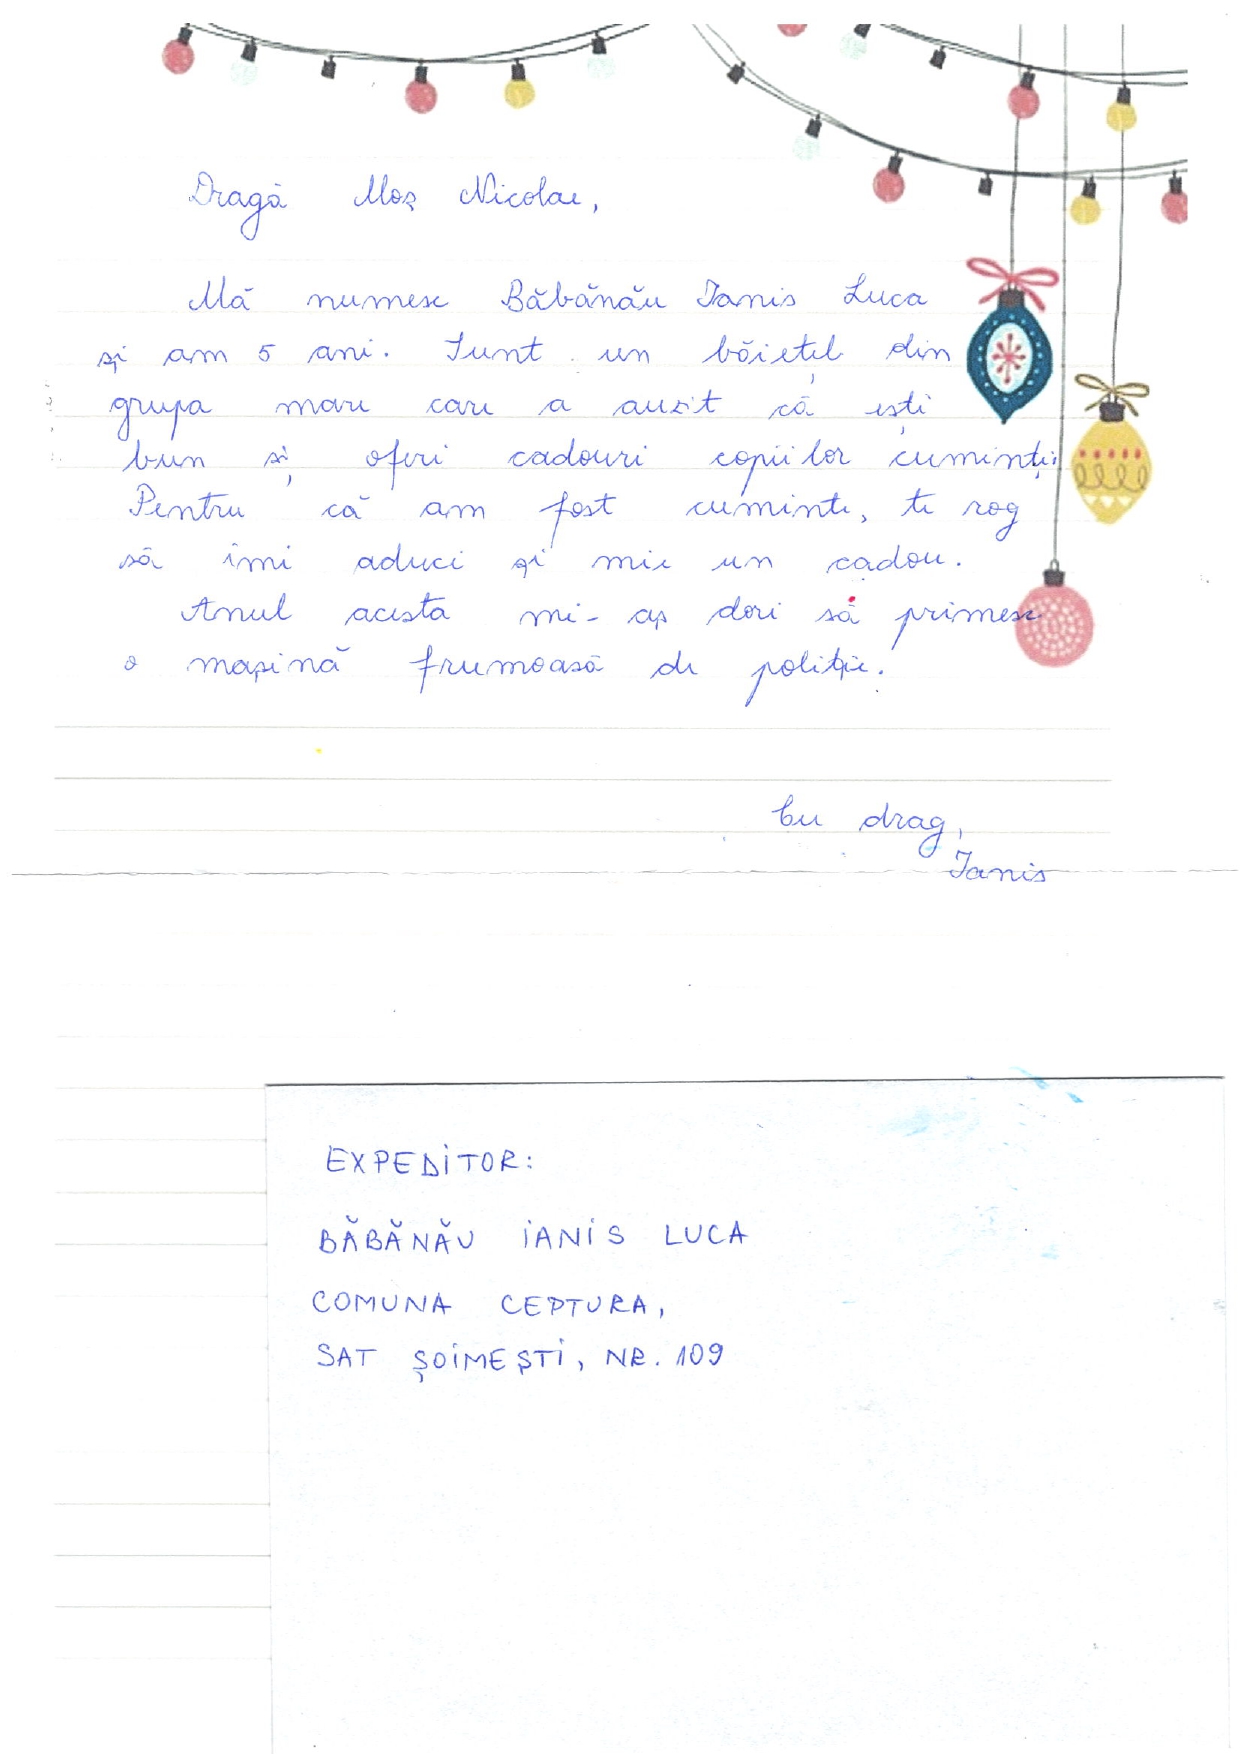 Dragă Moș Nicolae,
Mă numesc Băbănău Ianis Luca
și am 5 ani. Sunt un băiețel din
grupa mare care a auzit că ești
bun și oferi cadouri copiilor cuminți.
Pentru că am fost cuminte, te rog
să îmi aduci și mie un cadou.
Anul acesta mi-aș dori să primesc
o mașină frumoasă de poliție.
Cu drag,
Ianis
EXPEDITOR:
BĂBĂNĂU IANIS LUCA
COMUNA CEPTURA,
SAT ȘOIMEȘTI, NR. 109